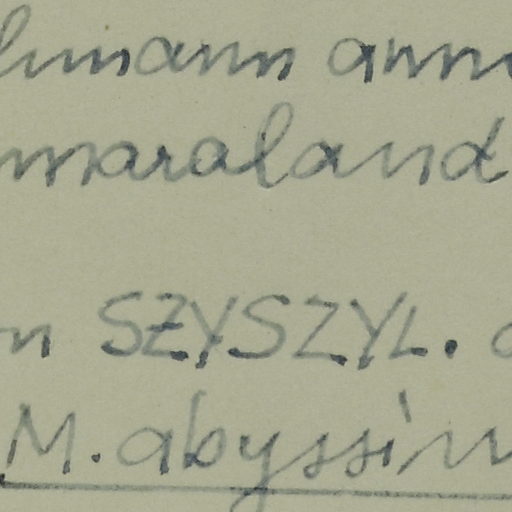 lmann ann
maraland
n SZYSZYL.
M. abyssin